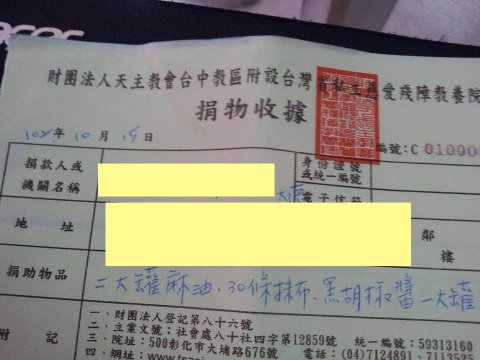 財團法人天主教會台中教區附設台灣省私立慈愛殘障教養院
捐物收據
102年10月15日
編號:C 01000
捐款人或
機關名稱
身份證號
或統一編號
大德
電子信箱
地 址
鄰
樓
捐助物品
二大罐麻油、30條抹布、黑胡椒醬一大罐
附 記
一、財團法人登記第八十六號
二、立案文號:社會處八十社四字第12859號 統一編號:59313160
三、院址:500彰化市大埔路676號 電話:(04)7124891
四、網址: